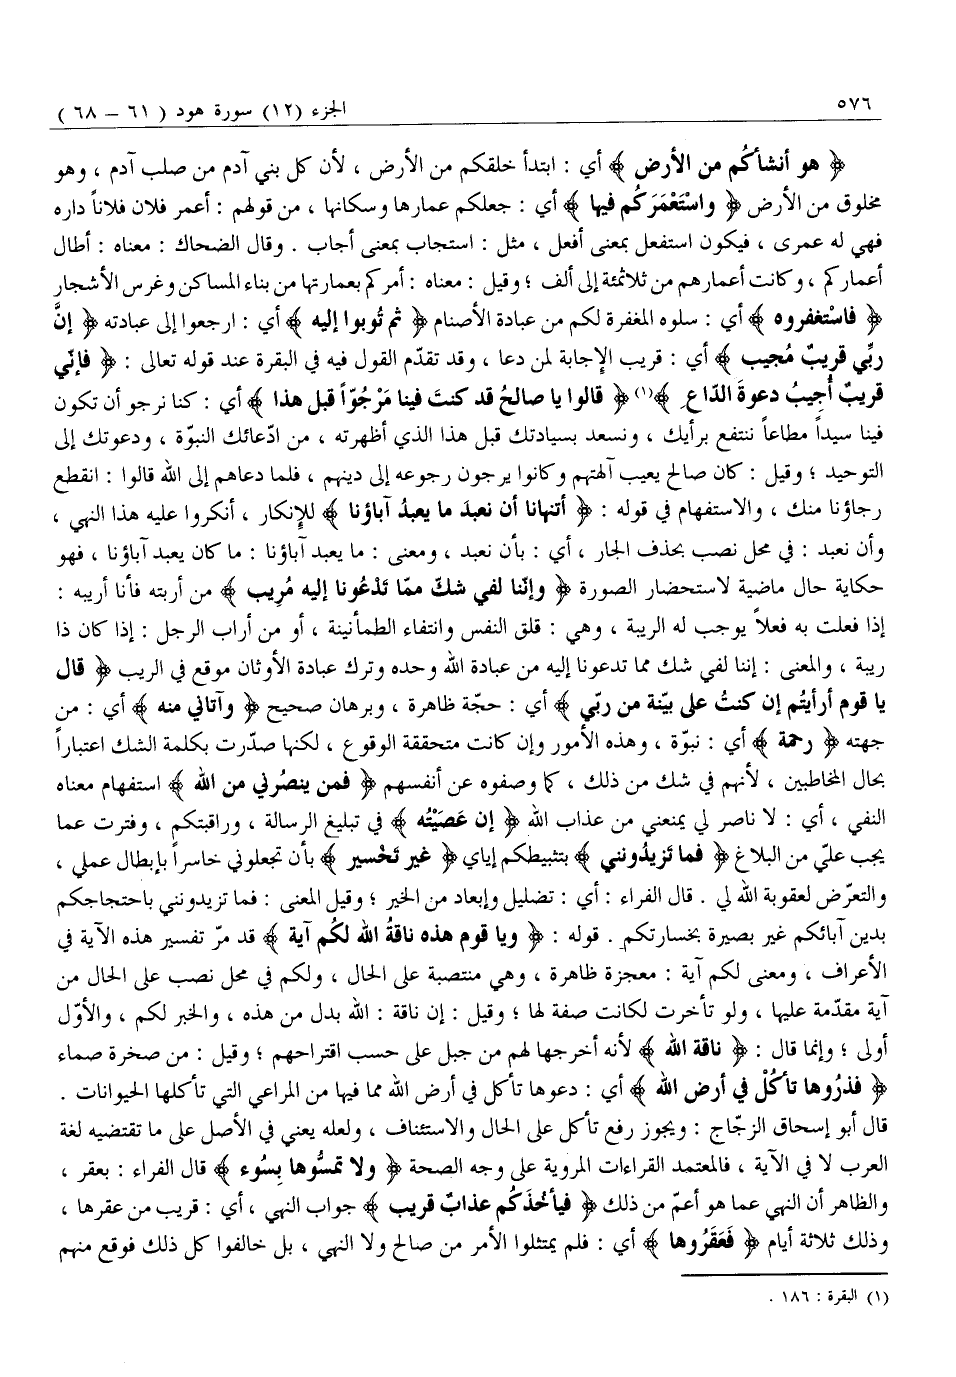 ٥٧٦
الجزء (١٢) سورة هود ( ٦١ – ٦٨ )
﴿ هو أنشأكُم من الأرض ﴾ أي : ابتدأ خلقكم من الأرض ، لأن كل بني آدم من صلب آدم ، وهو
مخلوق من الأرض ﴿ واسْتَعْمَرَكُم فيها ﴾ أي : جعلكم عمارها وسكانها ، من قولهم : أعمر فلان فلاناً داره
فهي له عمرى ، فيكون استفعل بمعنى أفعل ، مثل : استجاب بمعنى أجاب . وقال الضحاك : معناه : أطال
أعماركم ، وكانت أعمارهم من ثلاثمئة إلى ألف ؛ وقيل : معناه : أمركم بعمارتها من بناء المساكن وغرس الأشجار
﴿ فاسْتغفروه ﴾ أي : سلوه المغفرة لكم من عبادة الأصنام ﴿ ثم تُوبوا إليه ﴾ أي : ارجعوا إلى عبادته ﴿ إنَّ
ربِّي قريبٌ مُجيب ﴾ أي : قريب الإجابة لمن دعا ، وقد تقدّم القول فيه في البقرة عند قوله تعالى : ﴿ فإنّي
قريبٌ أُجيبُ دعوةَ الدّاعِ ﴾(١) ﴿ قالوا يا صالحُ قد كنتَ فينا مَرْجُوّاً قبل هذا ﴾ أي : كنا نرجو أن تكون
فينا سيداً مطاعاً ننتفع برأيك ، ونسعد بسيادتك قبل هذا الذي أظهرته ، من ادّعائك النبوّة ، ودعوتك إلى
التوحيد ؛ وقيل : كان صالح يعيب آلهتهم وكانوا يرجون رجوعه إلى دينهم ، فلما دعاهم إلى الله قالوا : انقطع
رجاؤنا منك ، والاستفهام في قوله : ﴿ أتنهانا أن نعبدَ ما يعبدُ آباؤنا ﴾ للإنكار ، أنكروا عليه هذا النهي ،
وأن نعبد : في محل نصب بحذف الجار ، أي : بأن نعبد ، ومعنى : ما يعبد آباؤنا : ما كان يعبد آباؤنا ، فهو
حكاية حال ماضية لاستحضار الصورة ﴿ وإنّنا لفي شكّ ممّا تَدْعُونا إليه مُرِيب ﴾ من أربته فأنا أريبه :
إذا فعلت به فعلاً يوجب له الريبة ، وهي : قلق النفس وانتفاء الطمأنينة ، أو من أراب الرجل : إذا كان ذا
ريبة ، والمعنى : إننا لفي شك مما تدعونا إليه من عبادة الله وحده وترك عبادة الأوثان موقع في الريب ﴿ قال
يا قوم أرأيتُم إن كنتُ على بيّنة من ربّي ﴾ أي : حجّة ظاهرة ، وبرهان صحيح ﴿ وآتاني منه ﴾ أي : من
جهته ﴿ رحمة ﴾ أي : نبوّة ، وهذه الأمور وإن كانت متحققة الوقوع ، لكنها صدّرت بكلمة الشك اعتباراً
بحال المخاطبين ، لأنهم في شك من ذلك ، كما وصفوه عن أنفسهم ﴿ فمن ينصُرني من الله ﴾ استفهام معناه
النفي ، أي : لا ناصر لي يمنعني من عذاب الله ﴿ إن عَصَيْتُه ﴾ في تبليغ الرسالة ، وراقبتكم ، وفترت عما
يجب عليّ من البلاغ ﴿ فما تَزيدُونني ﴾ بتثبيطكم إياي ﴿ غير تَخْسير ﴾ بأن تجعلوني خاسراً بإبطال عملي ،
والتعرّض لعقوبة الله لي . قال الفراء : أي : تضليل وإبعاد من الخير ؛ وقيل المعنى : فما تزيدونني باحتجاجكم
بدين آبائكم غير بصيرة بخسارتكم . قوله : ﴿ ويا قوم هذه ناقةُ الله لكُم آية ﴾ قد مرّ تفسير هذه الآية في
الأعراف ، ومعنى لكم آية : معجزة ظاهرة ، وهي منتصبة على الحال ، ولكم في محل نصب على الحال من
آية مقدّمة عليها ، ولو تأخرت لكانت صفة لها ؛ وقيل : إن ناقة : الله بدل من هذه ، والخبر لكم ، والأوّل
أولى ؛ وإنما قال : ﴿ ناقة الله ﴾ لأنه أخرجها لهم من جبل على حسب اقتراحهم ؛ وقيل : من صخرة صماء
﴿ فذرُوها تأكُلْ في أرض الله ﴾ أي : دعوها تأكل في أرض الله مما فيها من المراعي التي تأكلها الحيوانات .
قال أبو إسحاق الزجّاج : ويجوز رفع تأكل على الحال والاستئناف ، ولعله يعني في الأصل على ما تقتضيه لغة
العرب لا في الآية ، فالمعتمد القراءات المروية على وجه الصحة ﴿ ولا تمسُّوها بِسُوء ﴾ قال الفراء : بعقر ،
والظاهر أن النهي عما هو أعمّ من ذلك ﴿ فيأخُذَكُم عذابٌ قريب ﴾ جواب النهي ، أي : قريب من عقرها ،
وذلك ثلاثة أيام ﴿ فَعَقَرُوها ﴾ أي : فلم يمتثلوا الأمر من صالح ولا النهي ، بل خالفوا كل ذلك فوقع منهم
(١) البقرة : ١٨٦ .